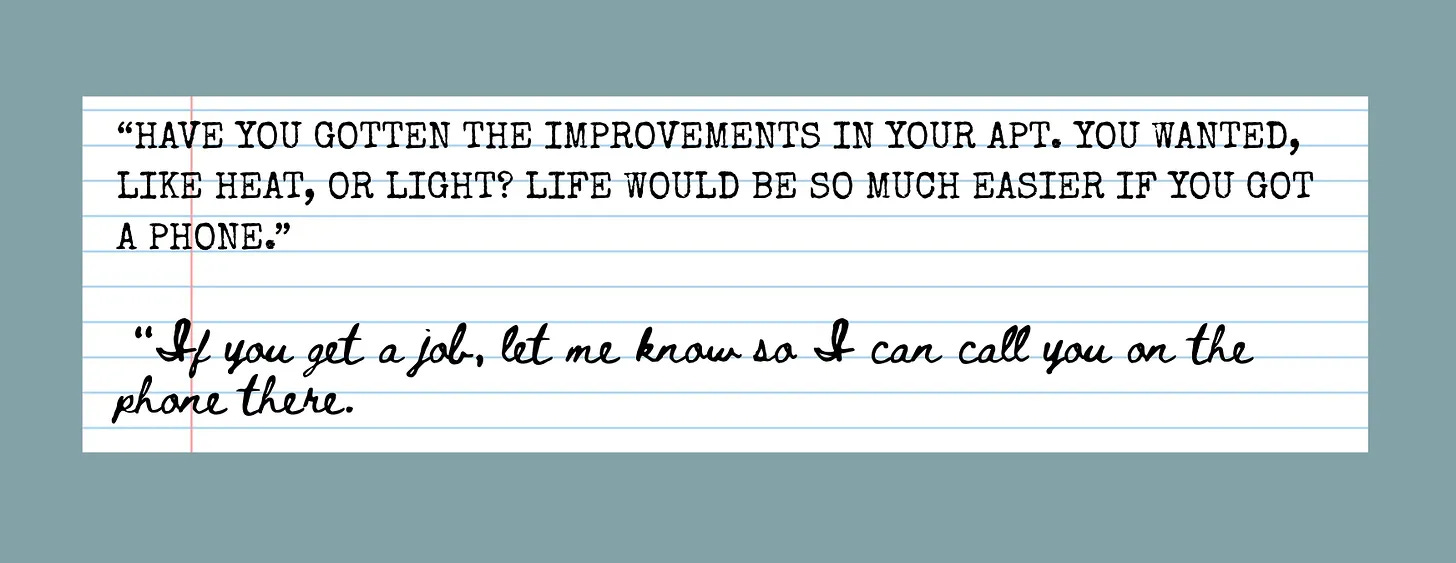 “HAVE YOU GOTTEN THE IMPROVEMENTS IN YOUR APT. YOU WANTED,
LIKE HEAT, OR LIGHT? LIFE WOULD BE SO MUCH EASIER IF YOU GOT
A PHONE.”
“If you get a job, let me know so I can call you on the
phone there.